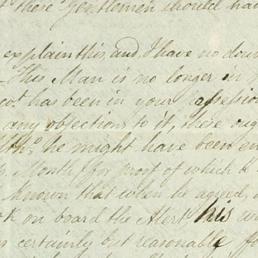 those Gentlemen should had
explain this, and I have no dou
This Man is no longer in
has been in your possession
any objections to it, there
he might have been en
Month for most of which he
known that when he agreed,
on board the Alert his w
certainly but reasonable